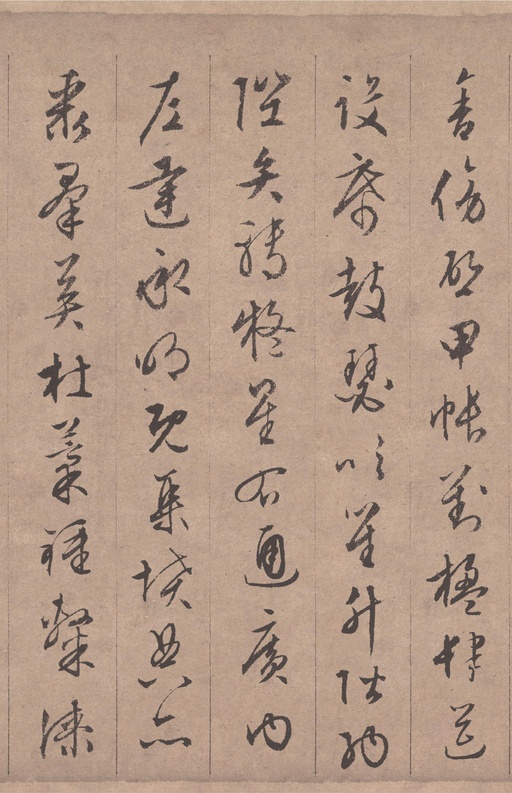 舍傍啟甲帳對楹肆筵
設席鼓瑟吹笙升階納
陛弁轉疑星右通廣內
左達承明既集墳典亦
聚羣英杜稾鍾隸漆